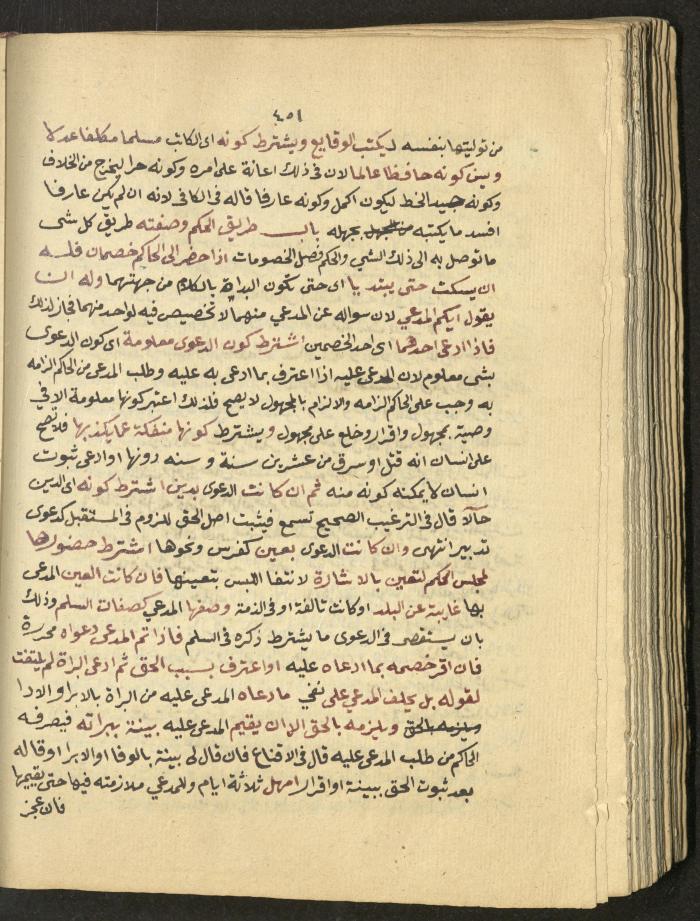 ٤٥١
من توليتها بنفسه ليكتب الوقايع ويشترط كونه اى الكاتب مسلما مكلفا عدلا
وسن كونه حافظا عالما لان فى ذلك اعانة على امره وكونه حرا ليخرج من الخلاف
وكونه جيد الخط ليكون اكمل وكونه عارفا قاله فى الكافى لانه ان لم يكن عارفا
افسد ما يكتبه بجهله باب طريق الحكم وصفته طريق كل شى
ما توصل به الى ذلك الشي والحكم فصل الخصومات اذا حضر الى الحاكم خصمان فله
ان يسكت حتى يبتديا اى حتى تكون البداة بالكلام من جهتهما وله ان
يقول ايكم المدعي لان سواله عن المدعي منهما لا تخصيص فيه لواحد منهما فجاز لذلك
فاذا ادعى احدهما اى احد الخصمين اشترط كون الدعوى معلومة اى كون الدعوى
بشى معلوم لان المدعى عليه اذا اعترف بما ادعى به عليه وطلب المدعى من الحاكم الزامه
به وجب على الحاكم الزامه والالزام بالمجهول لا يصح فلذلك اعتبر كونها معلومة الا في
وصية بمجهول واقرار وخلع على مجهول ويشترط كونها منفكة عما يكذبها فلا تصح
على انسان انه قتل او سرق من عشرين سنة وسنه دونها او ادعى ثبوت
انسان لا يمكنه كونه منه ثم ان كانت الدعوى بدين اشترط كونه اى الدين
حالا قال فى الترغيب الصحيح تسمع فيثبت اصل الحق للزوم فى المستقبل كدعوى
تدبير انتهى وان كانت الدعوى بعين كفرس ونحوها اشترط حضورها
لمجلس الحكم لتعين بالاشارة لانتفا اللبس بتعينها فان كانت العين المدعى
بها غايبة عن البلد او كانت تالفة او فى الذمة وصفها المدعي كصفات السلم وذلك
بان يستقصى فى الدعوى ما يشترط ذكره فى السلم فاذا تم المدعى دعواه محررة
فان اقر خصمه بما ادعاه عليه او اعترف بسبب الحق ثم ادعى البراة لم يلتفت
لقوله بل يحلف المدعي على نفي ما دعاه المدعى عليه من البراة بالابرا او الادا
ويلزمه بالحق ويلزمه بالحق الا ان يقيم المدعى عليه بينة ببراته فيصرفه
الحاكم من طلب المدعى عليه قال فى الاقناع فان قال لى بينة بالوفا او الابرا او قاله
بعد ثبوت الحق ببينة او اقرار امهل ثلاثة ايام وللمدعي ملازمته فيها حتى يقيمها
فان عجز